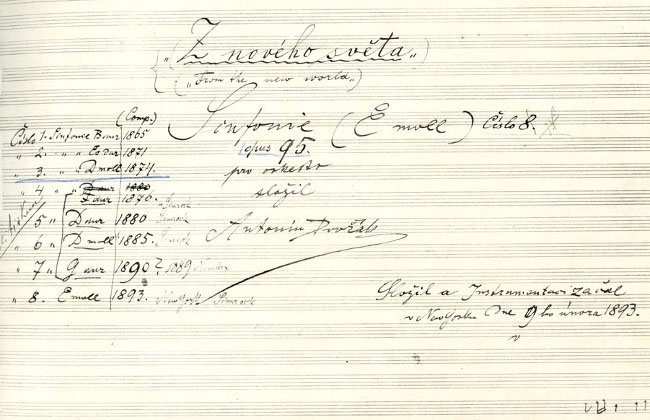 „Z nového světa„
(„From the new world„)
Sinfonie (E moll) Číslo 8.
opus 95.
pro orkestr
složil
Antonín Dvořák
(Comp.)
Číslo 1. Sinfonie B dur 1865
„ 2. „ „ Es dur 1871
„ 3. „ D moll 1874.
„ 4 „ „ D dur 1880
F dur 1870.
5 „ D dur 1880
„ 6 „ D moll 1885.
„ 7 „ G dur 1890? 1889
„ 8. E moll 1893. New York Simrock
Složil a Instrumentaci začal
v New Yorku Dne 9ho února 1893.